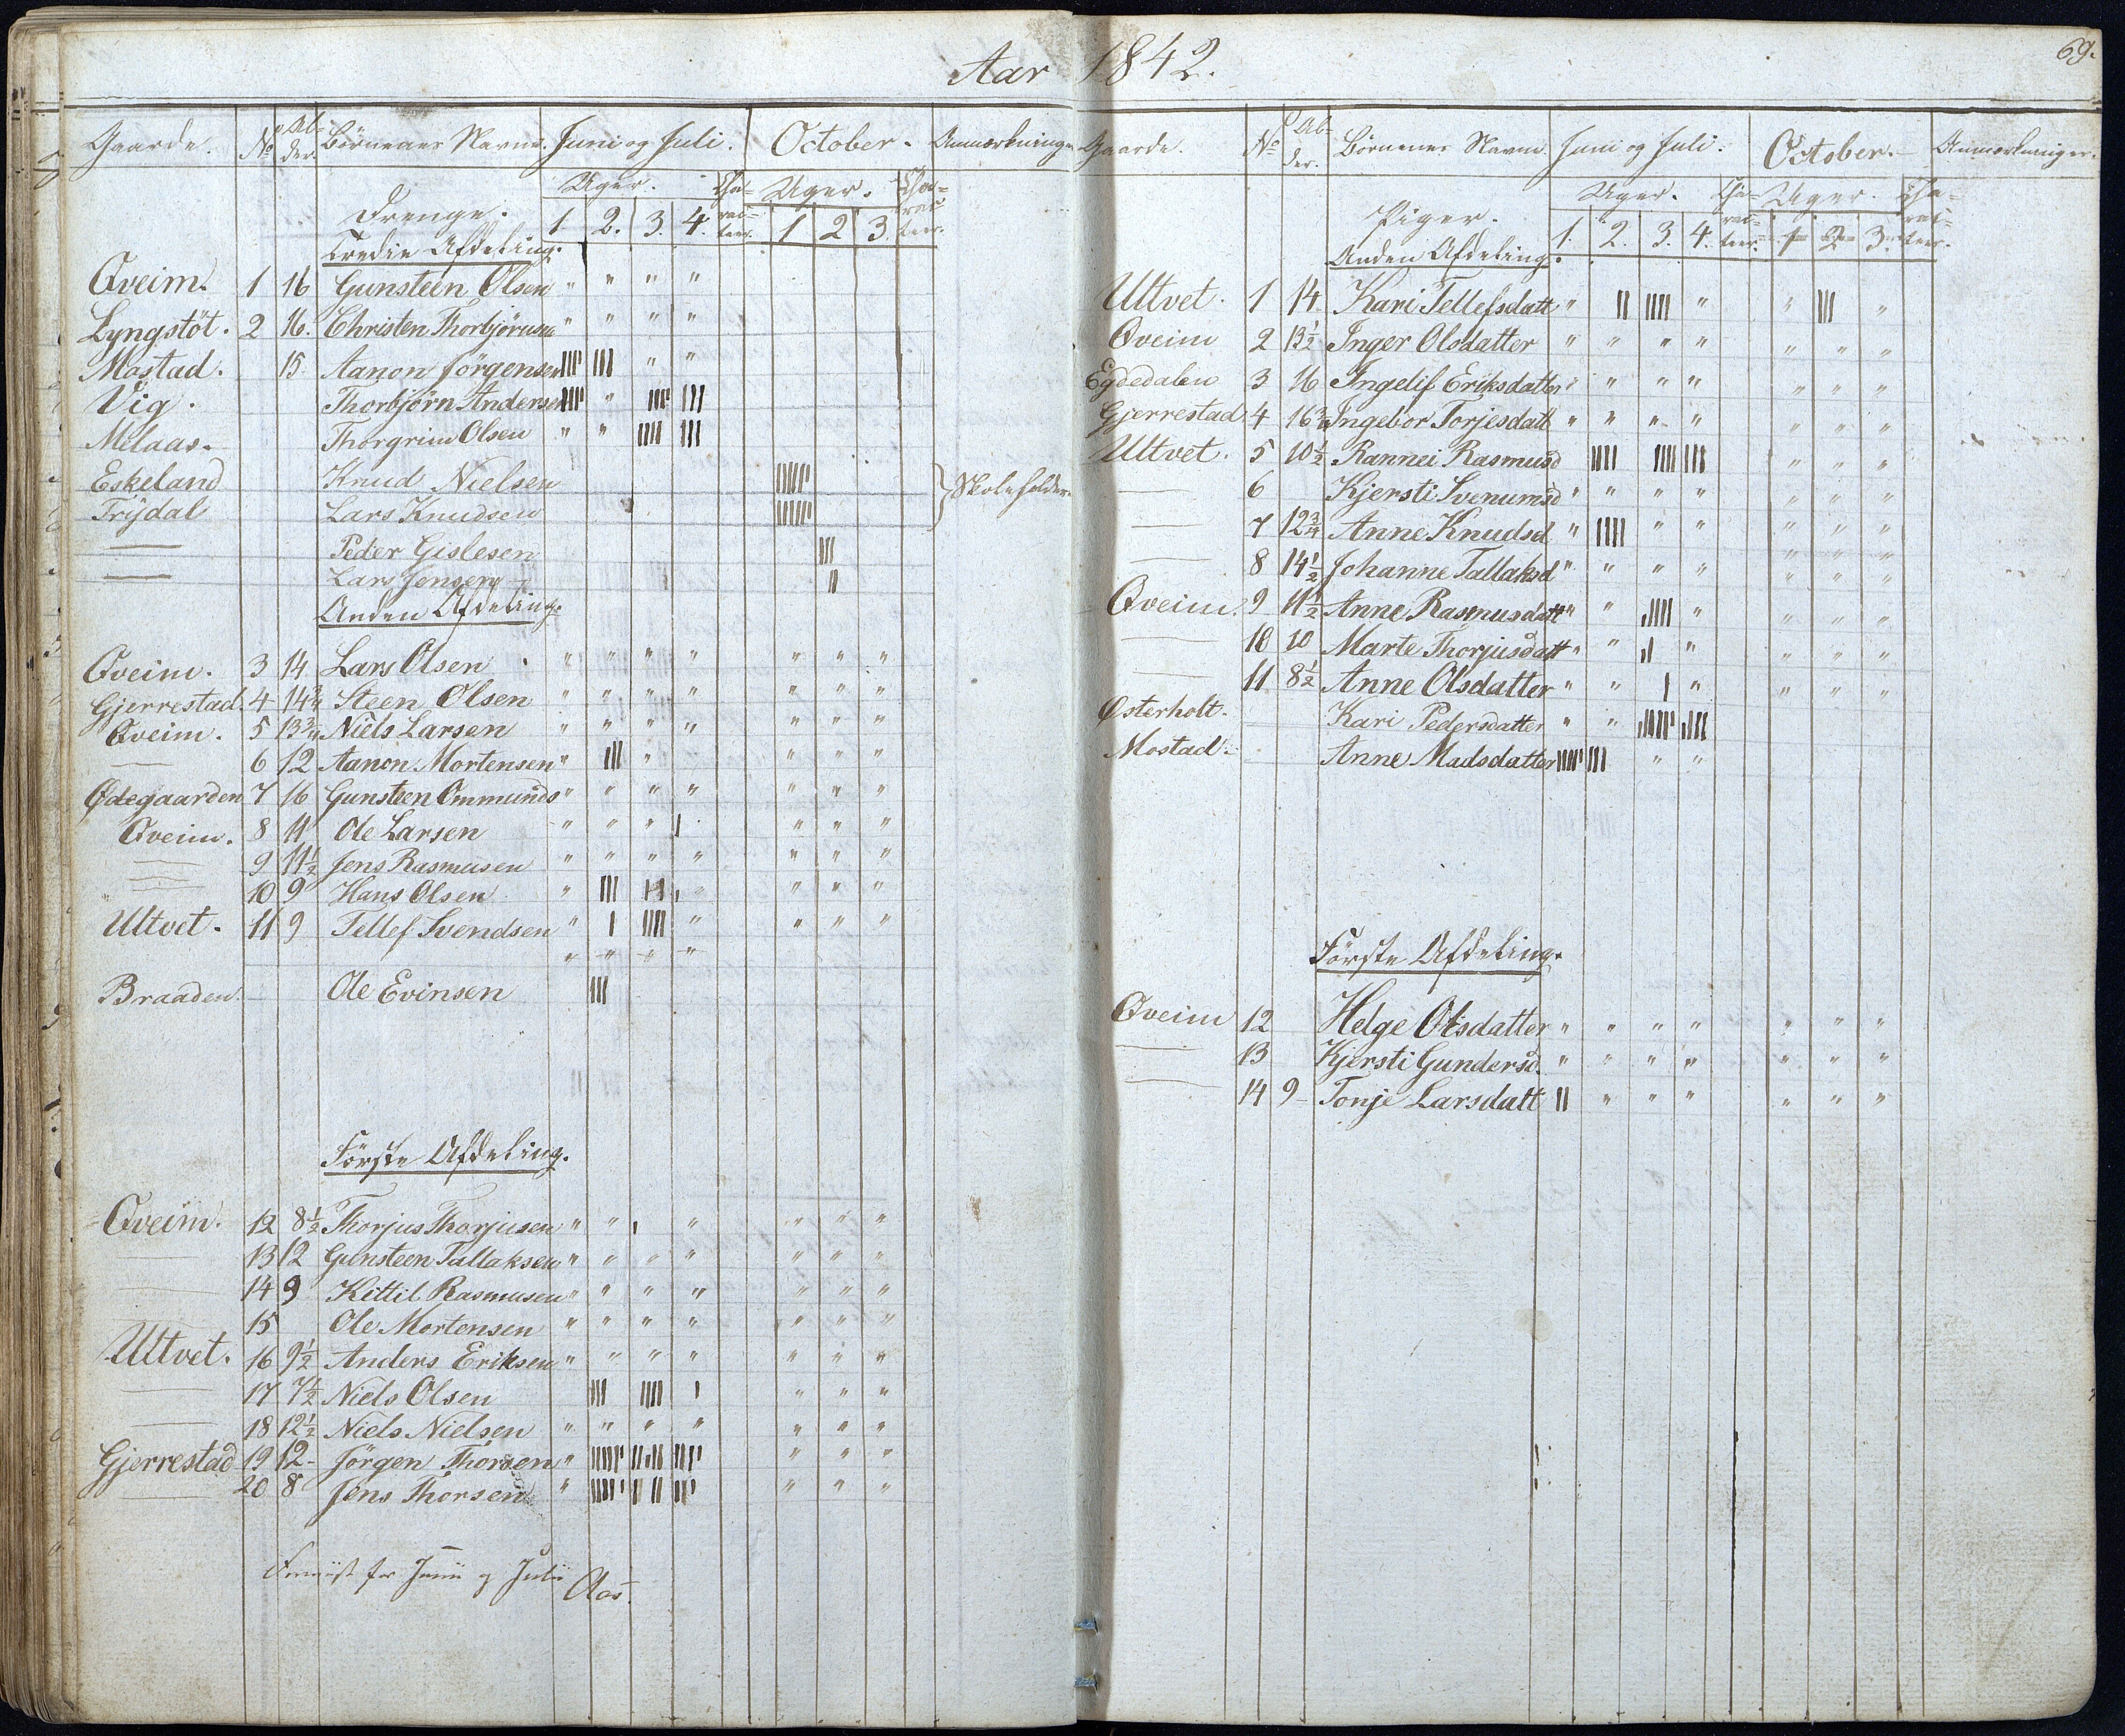 Aar 1842.
69.
Gaarde. No Al-der. Börnenes Navne. Juni og Juli. October. Anmærkninger
Uger. Cha-rac-teer. Uger. Cha-rac-teer.
Drenge. 1. 2. 3. 4. 1 2 3.
Tredie Afdeling.
Qveim. 1 16 Gunsteen Olsen " " " "
Lyngstöt. 2 16. Christen Thorbjörnsen " " " "
Mostad. 15 Aanon Jörgensen IIII III " "
Vig. Thorbjörn Andersen IIIII " IIII III
Melaas. Thorgrim Olsen " " IIII III
Eskeland Knud Nielsen IIIIII } Skoleholder
Trydal Lars Knudsen IIIIII
— Peder Gislesen III
— Lars Jensen II
Anden Afdeling.
Qveim. 3 14 Lars Olsen " " " " " " "
Gjerrestad. 4 14 3/4 Steen Olsen " " " " " " "
Qveim. 5 13 3/4 Niels Larsen " " " " " " "
— 6 12 Aanon Mortensen " III " " " "
Ødegaarden 7 16 Gunsteen Ommunds " " " " " " "
Qveim. 8 11 Ole Larsen " " " I " " "
— 9 11 1/2 Jens Rasmusen " " " " " " "
— 10 9 Hans Olsen " III III " " " "
Ultvet. 11 9 Tellef Svendsen " I IIII " " " "
" " " "
Braaden. Ole Evinsen III
Förste Afdeling.
Qveim. 12 8 1/2 Thorjus Thorjusen " " ı " " " "
— 13 12 Gunsteen Tallaksen " " " " " " "
— 14 9 Kittil Rasmusen " " " " " " "
15 Ole Mortensen " " " " " " "
Ultvet. 16 9 1/2 Anders Eriksen " " " " " " "
— 17 7 1/2 Niels Olsen III IIII I " " "
— 18 12 1/2 Niels Nielsen " " " " " " "
Gjerrestad 19 12- Jörgen Thorsen " IIIIII IIIII IIII " " "
— 20 8 Jens Thorsen " IIIII IIII III " " "
for Juni og Juli Aas.
Gaarde. No Al-der. Börnenes Navne. Juni og Juli. October. Anmærkninger.
Uger. Cha-rac-teer. Uger. Cha-rac-teer.
Piger. 1. 2. 3. 4. 1 2 3.
Anden Afdeling.
Ultvet. 1 14 Kari Tellefsdatt " II IIII " " III "
Qveim 2 13 1/2 Inger Olsdatter " " " " " " "
Egdedalen 3 16 Ingelif Eriksdatter " " " " " " "
Gjerrestad 4 16 3/4 Ingebor Torjesdatt " " " " " " "
Ultvet. 5 10 1/2 Rannei Rasmusd IIII IIII III " " "
— 6 Kjersti Svenumsd " " " " " " "
— 7 12 3/4 Anne Knudsd. " IIII " " " " "
— 8 14 1/2 Johanne Tallaksd " " " " " " "
Qveim. 9 11 1/2 Anne Rasmusdatt " " IIII " " " "
— 10 10 Marte Thorjusdatt " " II " " " "
— 11 8 1/2 Anne Olsdatter " " I " " " "
Østerholt. Kari Pedersdatter " " IIIIII IIII
Mostad. Anne Madsdatter IIIII III " "
Förste Afdeling.
Qveim 12 Helge Olsdatter " " " " " " "
— 13 Kjersti Gundersd. " " " " " " "
— 14 9- Tonje Larsdatt II " " " " " "